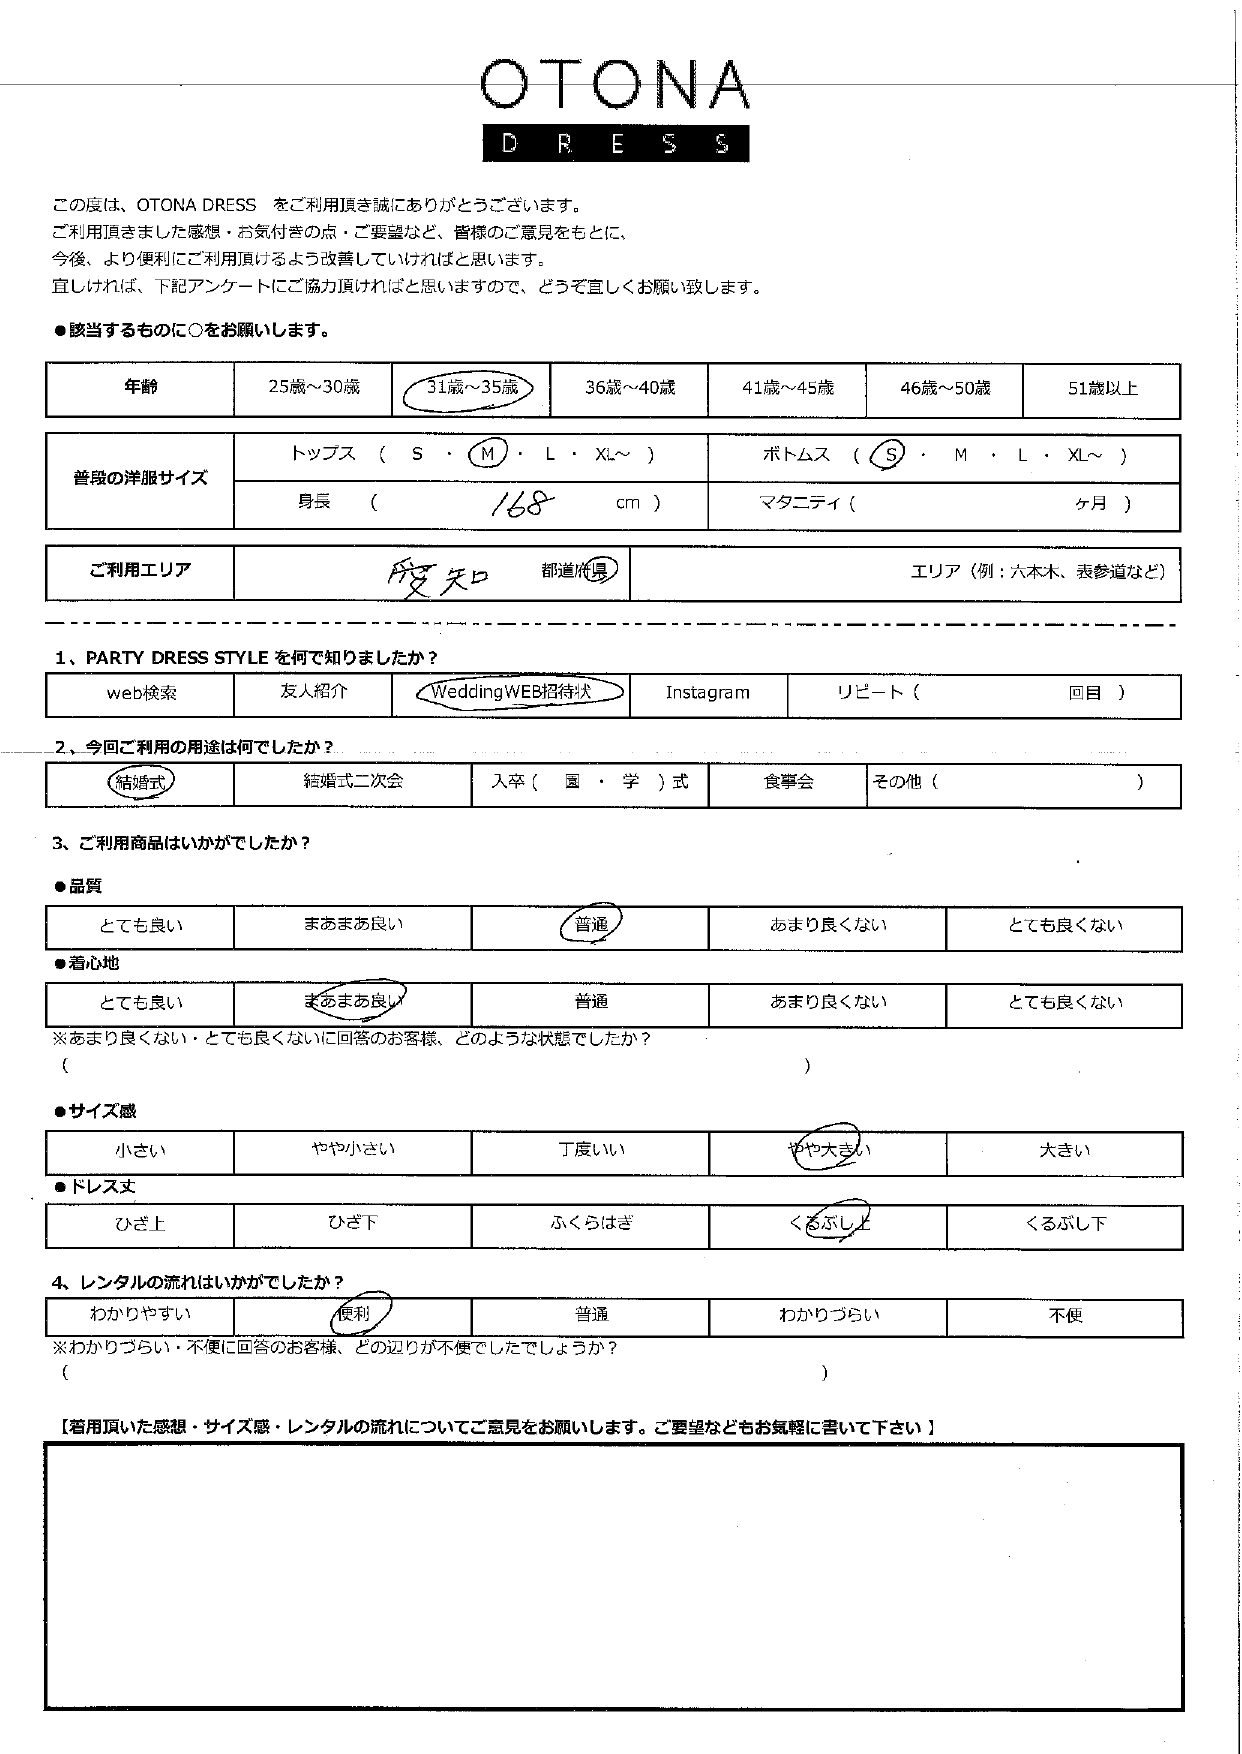 OTONA
DRESS
この度は、OTONA DRESS　をご利用頂き誠にありがとうございます。
ご利用頂きました感想・お気付きの点・ご要望など、皆様のご意見をもとに、
今後、より便利にご利用頂けるよう改善していければと思います。
宜しければ、下記アンケートにご協力頂ければと思いますので、どうぞ宜しくお願い致します。
●該当するものに〇をお願いします。
年齢 25歳～30歳 31歳～35歳 36歳～40歳 41歳～45歳 46歳～50歳 51歳以上
普段の洋服サイズ トップス （ S ・ M ・ L ・ XL～ ） ボトムス （ S ・ M ・ L ・ XL～ ）
身長 （ 168 cm ） マタニティ（ ヶ月 ）
ご利用エリア 愛知 都道府県 エリア（例：六本木、表参道など）
1、PARTY DRESS STYLE を何で知りましたか？
web検索 友人紹介 WeddingWEB招待状 Instagram リピート（ 回目 ）
2、今回ご利用の用途は何でしたか？
結婚式 結婚式二次会 入卒（ 園 ・ 学 ）式 食事会 その他（ ）
3、ご利用商品はいかがでしたか？
●品質
とても良い まあまあ良い 普通 あまり良くない とても良くない
●着心地
とても良い まあまあ良い 普通 あまり良くない とても良くない
※あまり良くない・とても良くないに回答のお客様、どのような状態でしたか？
（ ）
●サイズ感
小さい やや小さい 丁度いい やや大きい 大きい
●ドレス丈
ひざ上 ひざ下 ふくらはぎ くるぶし上 くるぶし下
4、レンタルの流れはいかがでしたか？
わかりやすい 便利 普通 わかりづらい 不便
※わかりづらい・不便に回答のお客様、どの辺りが不便でしたでしょうか？
（ ）
【着用頂いた感想・サイズ感・レンタルの流れについてご意見をお願いします。ご要望などもお気軽に書いて下さい 】